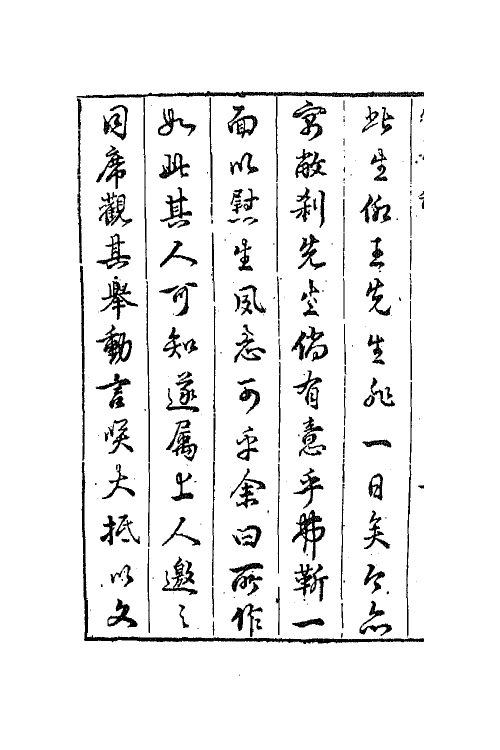 此生仰王先生非一日矣今亦
寓敝刹先生倘有意乎弗靳一
面以慰生夙志可乎余曰所作
如此其人可知遂属上人邀之
同席觀其舉動言笑大抵以文